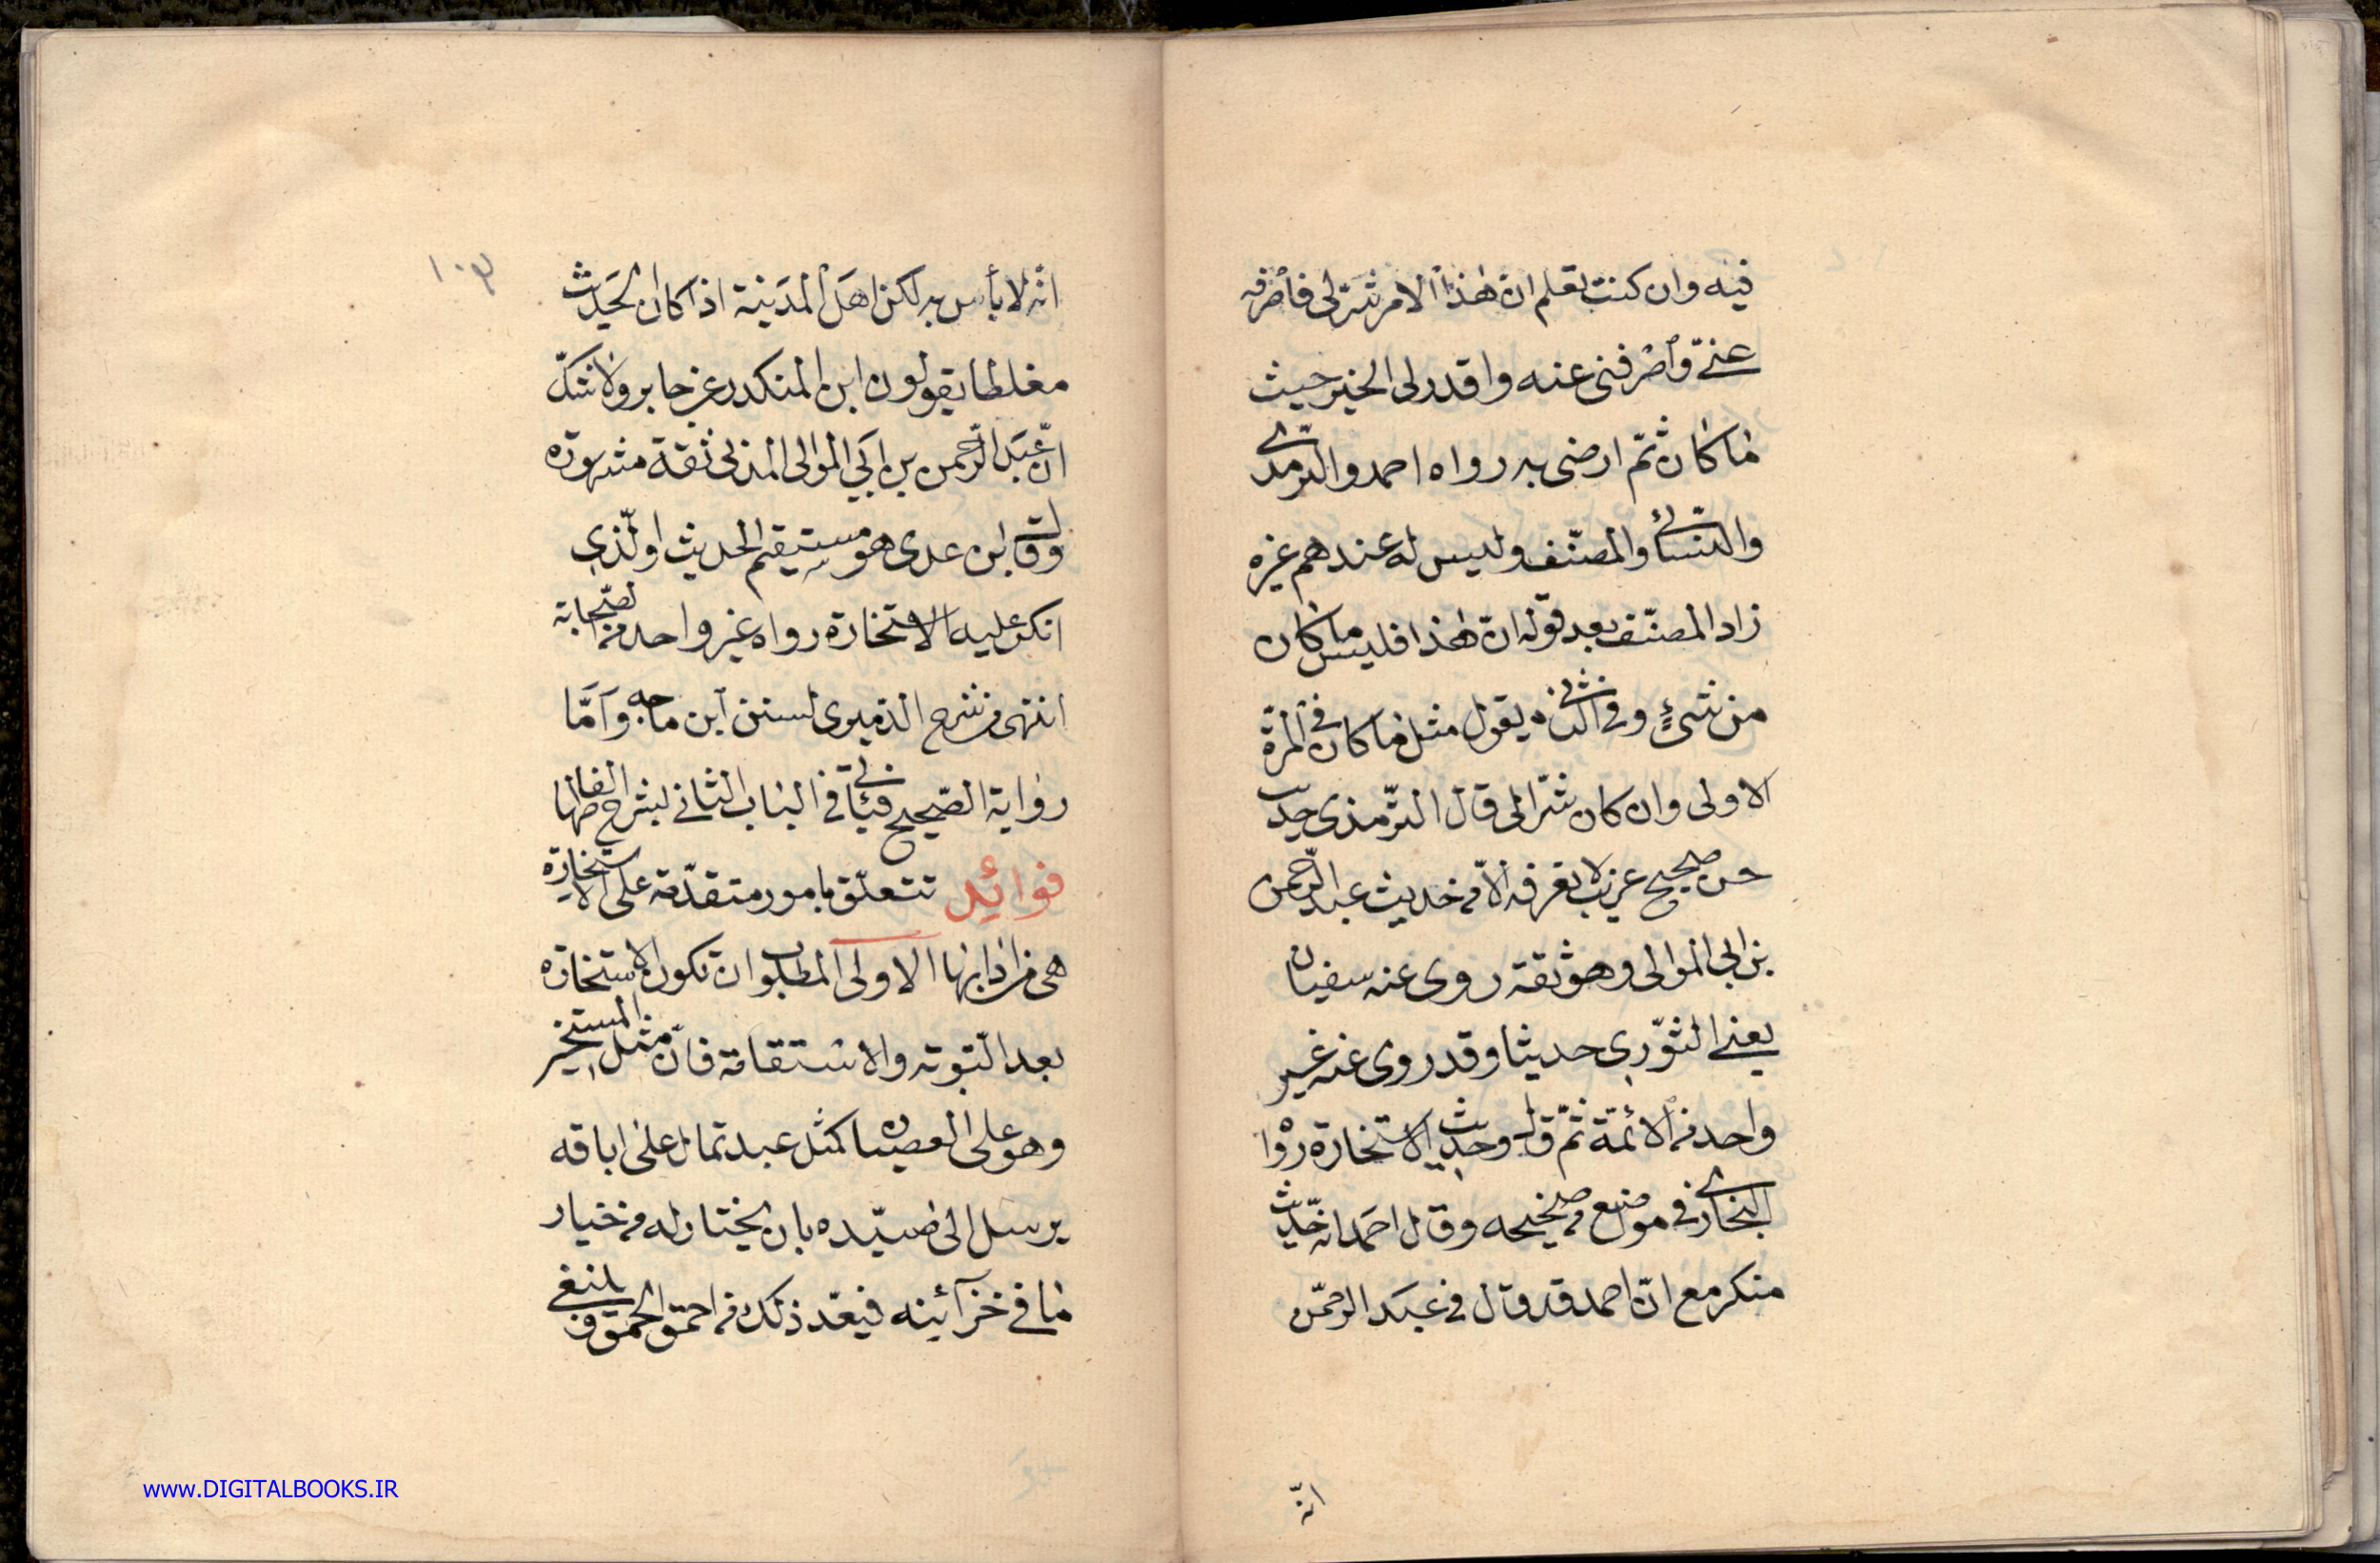 فيه وان كنت تعلم ان هذا الامر شر لى فاصرفه
عنّى واصرفنى عنه واقدر لى الخير حيث
ما كان ثمّ ارضنى به رواه احمد والترمذى
والنّسائى والمصنّف وليس له عندهم غيره
زاد المصنّف بعد قوله انّ هذا فليس ما كان
من شئ وفى الشانى يقول مثل ما كان فى المرّة
الاولى وان كان شرّا لى قال التّرمذى حديث
حسن صحيح غريب لا نعرفه الاّ من حديث عبد الرّحمن
بن ابى الموالى وهو ثقة روى عنه سفيان
يعنى الثّورى حديثا وقد روى عنه غير
واحد من الائمّة ثمّ قال وحديث الاستخارة رواه
البخارى فى مواضع من صحيحه وقال احمد انه حديث
منكر مع انّ احمد قد قال فى عبد الرحمّن
انّه
١٠٣
انّه لا بأس به لكن اهل المدينة اذا كان الحديث
مغلطا يقولون ابن المنكدر عن جابر ولا شكّ
انّ عبد الرّحمن بن ابى الموالى المدنى ثقة مشهور
وقال ابن عدى هو مستقيم الحديث والّذى
انكر عليه الاستخارة رواه غير واحد من الصّحابة
انتهى من شرح الدّميرى لسنن ابن ماجه وامّا
رواية الصّحيح فيأتى فى الباب الثانى لشرح الفاظها
فوائد تتعلّق بامور متقدّمة على الاستخارة
هى من ادابها الاولى المطلوب ان تكون الاستخارة
بعد التّوبة والاستقامة فانّ مثل المستخير
وهو على العصيان كمثل عبد تمال على اباقه
يرسل الى سيّده بان يختار له من خيار
ما فى خزآئنه فيعدّ ذلك من احمق الحمق وينبغى
www.DIGITALBOOKS.IR